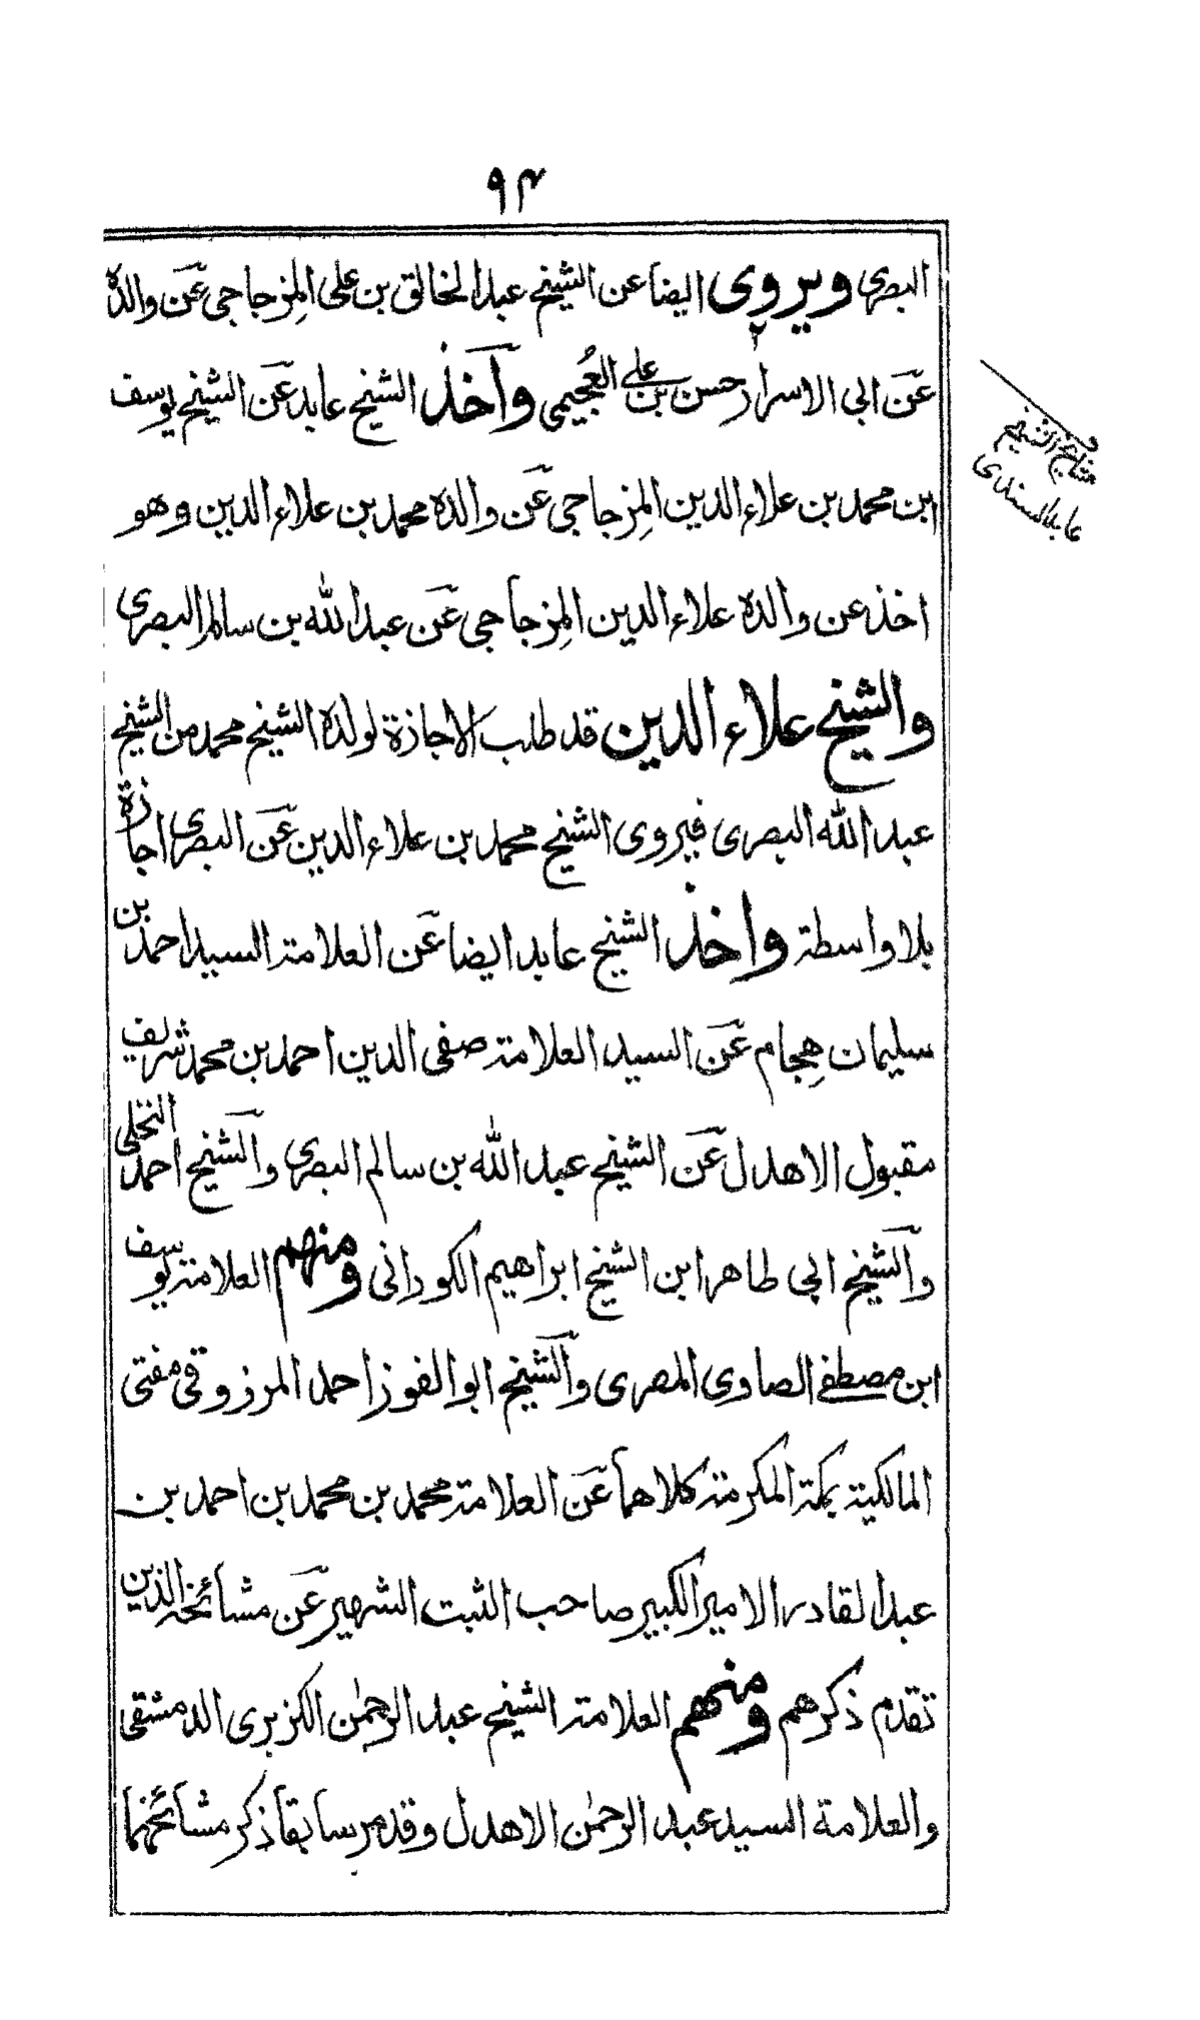 ۹۴
البصری ویروی ایضا عن الشیخ عبد الخالق بن علی المِزجاجی عَن والدہ
عَن ابی الاسرار حسن بن علی العُجیمی وآخذ الشیخ عابد عَن الشیخ یوسف
ابن محمد بن علاء الدین المِزجاجی عَن والدہ محمد بن علاء الدین وھو
اخذ عن والدہ علاء الدین المِزجاجی عَن عبد اللہ بن سالم البصری
والشیخ علاء الدین قد طلب الاجازة لولدہ الشیخ محمد من الشیخ
عبد اللہ البصری فیروی الشیخ محمد بن علاء الدین عَن البصری اجازة
بلا واسطة واخذ الشیخ عابد ایضا عَن العلامة السید احمد بن
سلیمان هِجام عَن السید العلامة صفی الدین احمد بن محمد شریف
مقبول الاھدل عَن الشیخ عبد اللہ بن سالم البصری والشیخ احمد النخلی
والشیخ ابی طاھر ابن الشیخ ابراھیم الکورانی ومنھم العلامة یوسف
ابن مصطفی الصاوی المصری والشیخ ابو الفوز احمد المرزوقی مفتی
المالکیة بمکة المکرمة کلاھما عَن العلامة محمد بن محمد بن احمد بن
عبد القادر الامیر الکبیر صاحب الثبت الشھیر عَن مشائخہ الذین
تقدم ذکرھم ومنھم العلامة الشیخ عبد الرحمٰن الکزبری الدمشقی
والعلامة السید عبد الرحمٰن الاھدل وقد مر سابقا ذکر مشائخھما
مشایخ الشیخ
عابد السندی